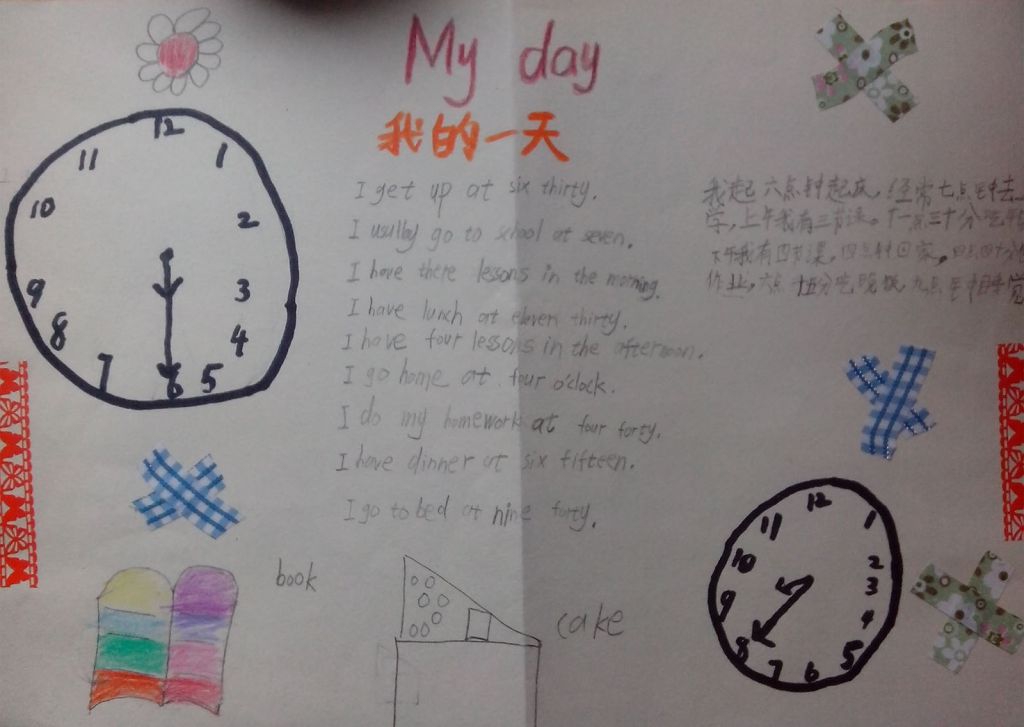 My day
我的一天
I get up at six thirty.
I usullby go to school at seven.
I have there lessons in the morning.
I have lunch at eleven thirty.
I have four lessons in the afternoon.
I go home at four o'clock.
I do my homework at four forty.
I have dinner at six fifteen.
I go to bed at nine forty.
我起六点钟起床,经常七点钟去
学,上午我有三节课。十一点三十分吃午
下午我有四节课,四点钟回家。四点四十分
作业,六点十五分吃晚饭,九点
book
cake
12
1
2
3
4
5
6
7
8
9
10
11
12
1
2
3
4
5
6
7
8
9
10
11